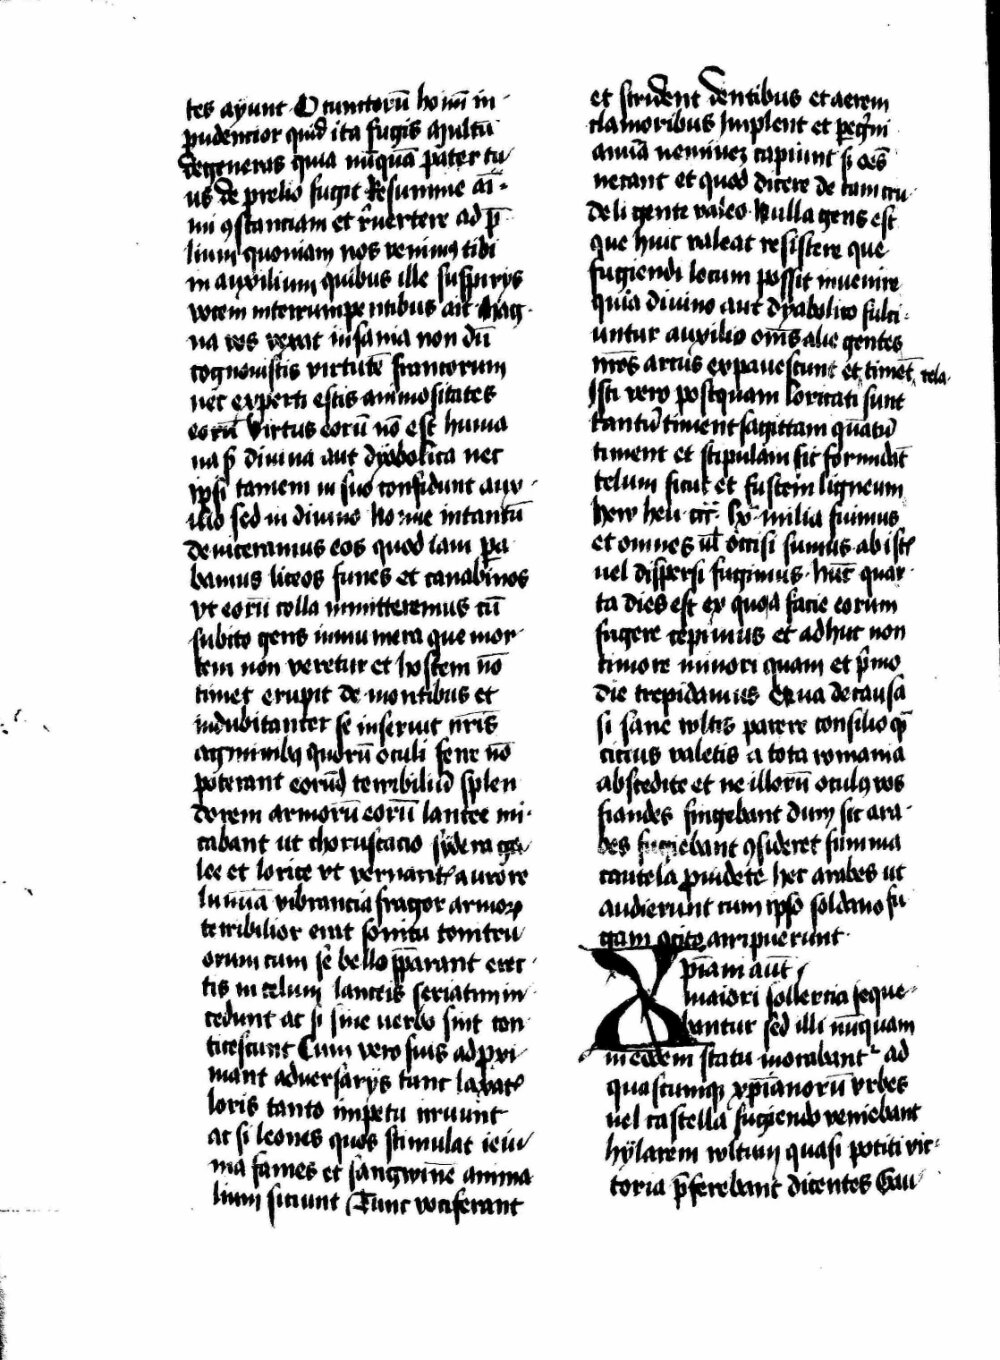 tes aẏunt O cunctorū homī in
pudencior quid ita fugis a multū
degeneras quia nūquā pater tu
us de prelio fugit Resumme aī
mi ꝯstanciam et r̄uertere ad p̄
lium quoniam nos venimꝰ tibi
in auxilium quibus ille suspirijs
vocem interrumpentibus ait Mag
na vos vexat insania non dū
cognouistis virtutē francorum
nec experti estis animositates
eorū virtus eorū nō est huma
na s̄ diuina aut dẏabolica nec
ipsi tamem in suo confidunt aux
ilio sed in diuino hodie intantū
deuiceramus eos quod iam pa
bamus liceos funes et canabinos
vt eorū colla inmitteremus cū
subito gens innumera que mor
tem non veretur et hostem nō
timet erupit de montibus et
indubitanter se inseruit nr̄is
agminibꝫ quorū oculi ferre nō
poterant eorūd terribiliū splen
dorem armorū eorū lancee mi
cabant ut choruscacio sẏdera ga
lee et lorice vt vernantꝭ aurore
lumīa vibrancia fragor armoꝝ
terribilior erat sonitu tonitru
orum cum se bello p̄parant erec
tis in celum lanceis seriatim in
cedunt ac si sine uerbo sint con
ticescunt Cum vero suis ad proxi
mant adversarijs tunc laxatꝭ
loris tanto impetu irruunt
ac si leones quos stimulat ieiu
nia fames et sangwinē anima
lium siciunt Tunc vociferant
et strident dentibus et aerem
clamoribus implent et peg̅ni
anīa neminez capiunt s̄ oēs
necant et quod dicere de tam cru
deli gente valeo Nulla gens est
que huic valeat resistere que
fugiendi locum possit inuenire
quia diuino aut dẏabolico fulci
untur auxilio om̄s alie gentes
nr̄os arcus expauescunt et timēt tela
Isti vero postquam loricati sunt
tantū timent sagittam quātū
timent et stipulam sic formidāt
telum sicut et fustem ligneum
hew heu cccͣ lxͣ milia fuimus
et omnes ul̄ occisi sumus ab istꝭ
uel dispersi fugimus hūc quar
ta dies est ex quoa facie eorum
fugere cepimus et adhuc non
timore minori quam et p̄mo
die trepidamus Qua de causa
si sane vultis parere consilio qͣ
cicius valetis a tota romania
abscedite et ne illorū oculꝰ vos
fiandes fingebant dum sic ara
bes fugiebant ꝯsideret summa
cautela prouidete hec arabes ut
audierunt cum ipso soldano fu
gam ocito arripuerunt
Xpīam aūt
maiori sollercia seque
bantur sed illi nūquam
in eodem statu morabantᷣ ad
quascumqꝫ xpīanorū vrbes
uel castella fugiendo veniebant
hẏlarem vultum quasi potiti vic
toria p̄ferebant dicentes Gau